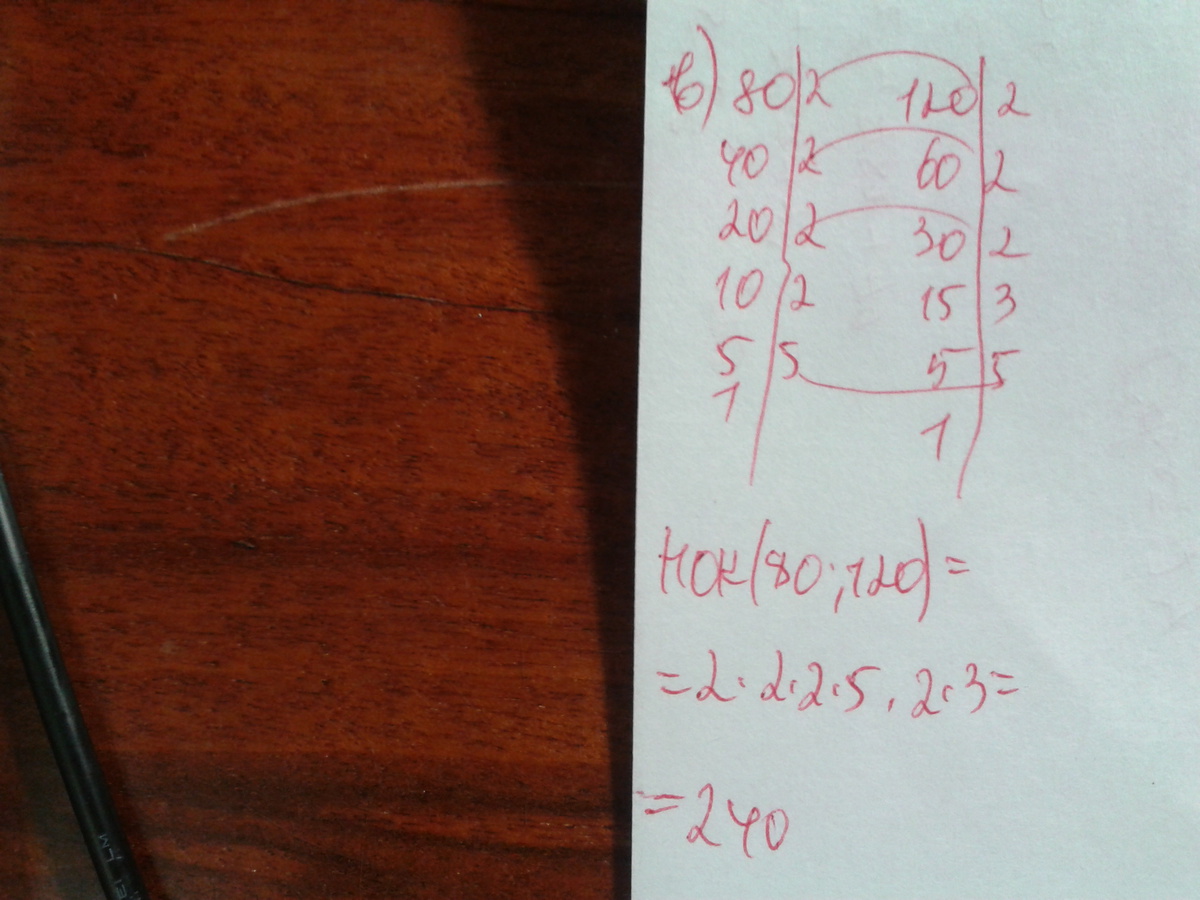 в) 80 | 2 120 | 2
40 | 2 60 | 2
20 | 2 30 | 2
10 | 2 15 | 3
5 | 5 5 | 5
1 | 1 |
НОК(80;120)=
=2·2·2·5·2·3=
=240